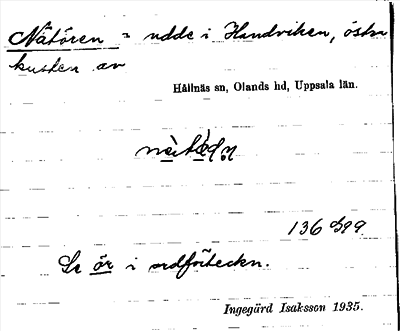 Nätören = udde i Handviken, östra
kusten av
Hållnäs sn, Olands hd, Uppsala län.
136 099
Se ör i ordförteckn.
Ingegärd Isaksson 1935.